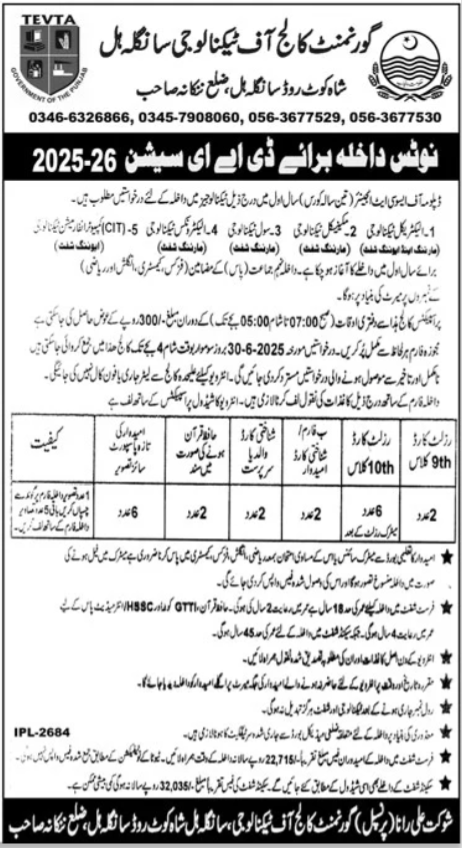 TEVTA
GOVERNMENT OF THE PUNJAB
گورنمنٹ کالج آف ٹیکنالوجی سانگلہ ہل
شاہ کوٹ روڈ سانگلہ ہل، ضلع ننکانہ صاحب
0346-6326866, 0345-7908060, 056-3677529, 056-3677530
نوٹس داخلہ برائے ڈی اے ای سیشن 26-2025
ڈپلومہ آف ایسوسی ایٹ انجینئر (تین سالہ کورس) سال اول میں درج ذیل ٹیکنالوجیز میں داخلہ کے لئے درخواستیں مطلوب ہیں۔
1- الیکٹریکل ٹیکنالوجی 2- مکینیکل ٹیکنالوجی 3- سول ٹیکنالوجی 4- الیکٹرونکس ٹیکنالوجی 5- (CIT) کمپیوٹر انفارمیشن ٹیکنالوجی
(مارننگ اینڈ ایوننگ شفٹ) (مارننگ شفٹ) (مارننگ شفٹ) (مارننگ شفٹ) (ایوننگ شفٹ)
برائے سال اول میں داخلے کا آغاز ہو چکا ہے۔ داخلہ نہم جماعت (پاس) کے مضامین (فزکس، کیمسٹری، انگلش اور ریاضی)
کے نمبروں پر میرٹ کی بنیاد پر ہوگا۔
پراسپکٹس کالج ہذا سے دفتری اوقات (صبح 07:00 تا شام 05:00 بجے تک) کے دوران مبلغ -/300 روپے کے عوض حاصل کی جاسکتی ہے
مجوزہ فارم ہر لحاظ سے مکمل پُر کریں۔ درخواستیں مورخہ 30-6-2025 بروز سوموار بوقت شام 4 بجے تک کالج ھذا میں جمع کروائی جاسکتی ہیں
نامکمل اور تاخیر سے موصول ہونے والی درخواستیں مسترد کردی جائیں گی۔ انٹرویو کیلئے علیحدہ کالج سے لیٹر جاری یا فون کال نہیں کی جائیگی۔
داخلہ فارم کے ساتھ درج ذیل کاغذات کی نقول لف کرنا لازمی ہیں۔ انٹرویو کا شیڈول پراسپیکٹس کے ساتھ لف ہے
رزلٹ کارڈ 9th کلاس
رزلٹ کارڈ 10th کلاس
ب فارم / شناختی کارڈ امیدوار
شناختی کارڈ والد یا سرپرست
حافظ قرآن ہونے کی صورت میں سند
امیدوار کی تازہ پاسپورٹ سائز تصویر
کیفیت
2 عدد
6 عدد میٹرک رزلٹ کے بعد
2 عدد
2 عدد
2 عدد
6 عدد
1 عدد تصویر داخلہ فارم پر گوند سے چسپاں کریں باقی 5 عدد تصاویر داخلہ فارم کے ساتھ لف کریں۔
★ امیدوار کا تعلیمی بورڈ سے میٹرک سائنس یا اس کے مساوی امتحان بمعہ ریاضی، انگلش، فزکس، کیمسٹری میں پاس کرنا ضروری ہے میٹرک میں فیل ہونے کی
صورت میں داخلہ منسوخ تصور ہوگا اور اس کی وصول شدہ فیس واپس کردی جائے گی۔
★ فرسٹ شفٹ میں داخلہ کیلئے عمر کی حد 18 سال ہے عمر میں رعایت 2 سال کی ہوگی۔ حافظ قرآن، GTTI کوٹہ اور HSSC/انٹرمیڈیٹ پاس کے لیے
عمر میں رعایت 4 سال ہوگی۔ جبکہ سیکنڈ شفٹ میں داخلہ کے لئے عمر کی حد 45 سال ہوگی۔
★ انٹرویو کے دن اصل کاغذات اور ان کی مطلوبہ تصدیق شدہ نقول ہمراہ لائیں۔
★ مقررہ تاریخ اور وقت پر انٹرویو کے لئے حاضر نہ ہونے والے امیدوار کی جگہ میرٹ پر اگلے امیدوار کو داخلہ دے دیا جائے گا۔
★ رول نمبر جاری ہونے کے بعد ٹیکنالوجی اور شفٹ ہرگز تبدیل نہ ہوگی۔
★ معذوری کی بنیاد پر داخلہ کے لئے متعلقہ ضلعی میڈیکل بورڈ سے جاری شدہ سرٹیفکیٹ کا ہونا لازمی ہیں۔
IPL-2684
★ فرسٹ شفٹ میں داخلہ کے امیدواران فیس مبلغ تقریباً -/22,715 روپے سالانہ داخلہ کے وقت ہمراہ لائیں۔ ٹیوٹا کے نوٹیفکیشن کے مطابق جمع شدہ فیس واپس نہیں ہوگی۔
★ سیکنڈ شفٹ کے داخلے بھی اسی شیڈول کے مطابق کئے جائیں گے۔ سیکنڈ شفٹ کی فیس تقریباً مبلغ -/32,035 روپے سالانہ ہوگی کمی بیشی ممکن ہے۔
شوکت علی رانا (پرنسپل) گورنمنٹ کالج آف ٹیکنالوجی، سانگلہ ہل شاہ کوٹ روڈ سانگلہ ہل، ضلع ننکانہ صاحب